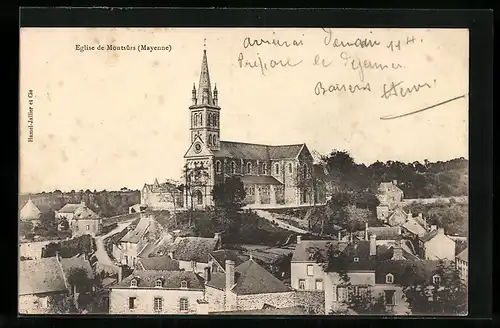 Eglise de Montsûrs (Mayenne)
Hamel-Jallier et Cie
Demain 11h
Prépare le Déjeuner
Baisers Henri